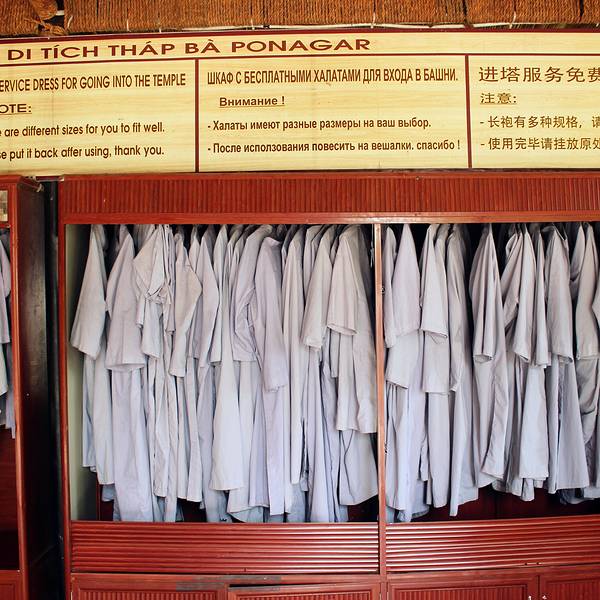 DI TÍCH THÁP BÀ PONAGAR
ERVICE DRESS FOR GOING INTO THE TEMPLE
OTE:
e are different sizes for you to fit well.
se put it back affer using, thank you.
ШКАФ С БЕСПЛАТНЫМИ ХАЛАТАМИ ДЛЯ ВХОДА В БАШНИ.
Внимание !
- Халаты имеют разные размеры на ваш выбор.
- После исползования повесить на вешалки. спасибо !
进塔服务免费
注意:
- 长袍有多种规格，请
- 使用完毕请挂放原处